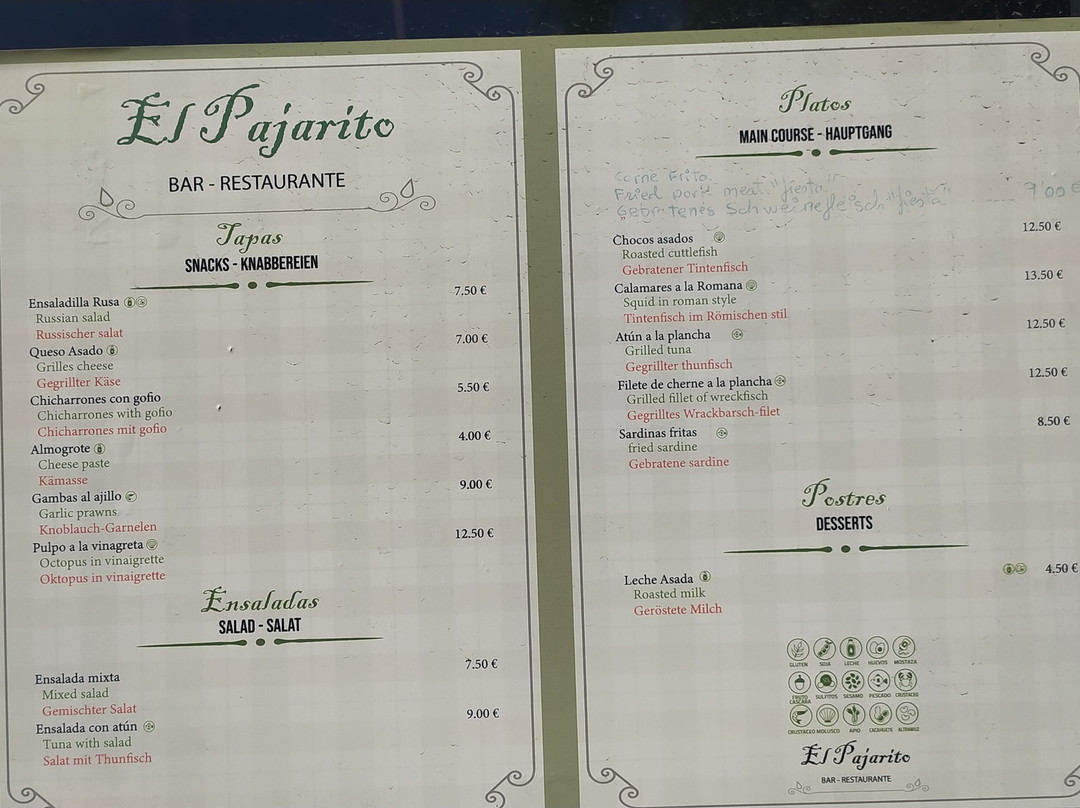 El Pajarito
BAR - RESTAURANTE
Tapas
SNACKS - KNABBEREIEN
Ensaladilla Rusa 7.50 €
Russian salad
Russischer salat
Queso Asado 7.00 €
Grilles cheese
Gegrillter Käse
Chicharrones con gofio 5.50 €
Chicharrones with gofio
Chicharrones mit gofio
Almogrote 4.00 €
Cheese paste
Kämasse
Gambas al ajillo 9.00 €
Garlic prawns
Knoblauch-Garnelen
Pulpo a la vinagreta 12.50 €
Octopus in vinaigrette
Oktopus in vinaigrette
Ensaladas
SALAD - SALAT
Ensalada mixta 7.50 €
Mixed salad
Gemischter Salat
Ensalada con atún 9.00 €
Tuna with salad
Salat mit Thunfisch
Platos
MAIN COURSE - HAUPTGANG
Carne Frita
Fried pork meat "fiesta" 9'00 €
Gebratenes Schweinefleisch "fiesta"
Chocos asados 12.50 €
Roasted cuttlefish
Gebratener Tintenfisch
Calamares a la Romana 13.50 €
Squid in roman style
Tintenfisch im Römischen stil
Atún a la plancha 12.50 €
Grilled tuna
Gegrillter thunfisch
Filete de cherne a la plancha 12.50 €
Grilled fillet of wreckfisch
Gegrilltes Wrackbarsch-filet
Sardinas fritas 8.50 €
fried sardine
Gebratene sardine
Postres
DESSERTS
Leche Asada 4.50 €
Roasted milk
Geröstete Milch
GLUTEN SOJA LECHE HUEVOS MOSTAZA
FRUTO CÁSCARA SULFITOS SESAMO PESCADO CRUSTACEO
CRUSTACEO MOLUSCO APIO CACAHUETE ALTRAMUZ
El Pajarito
BAR - RESTAURANTE